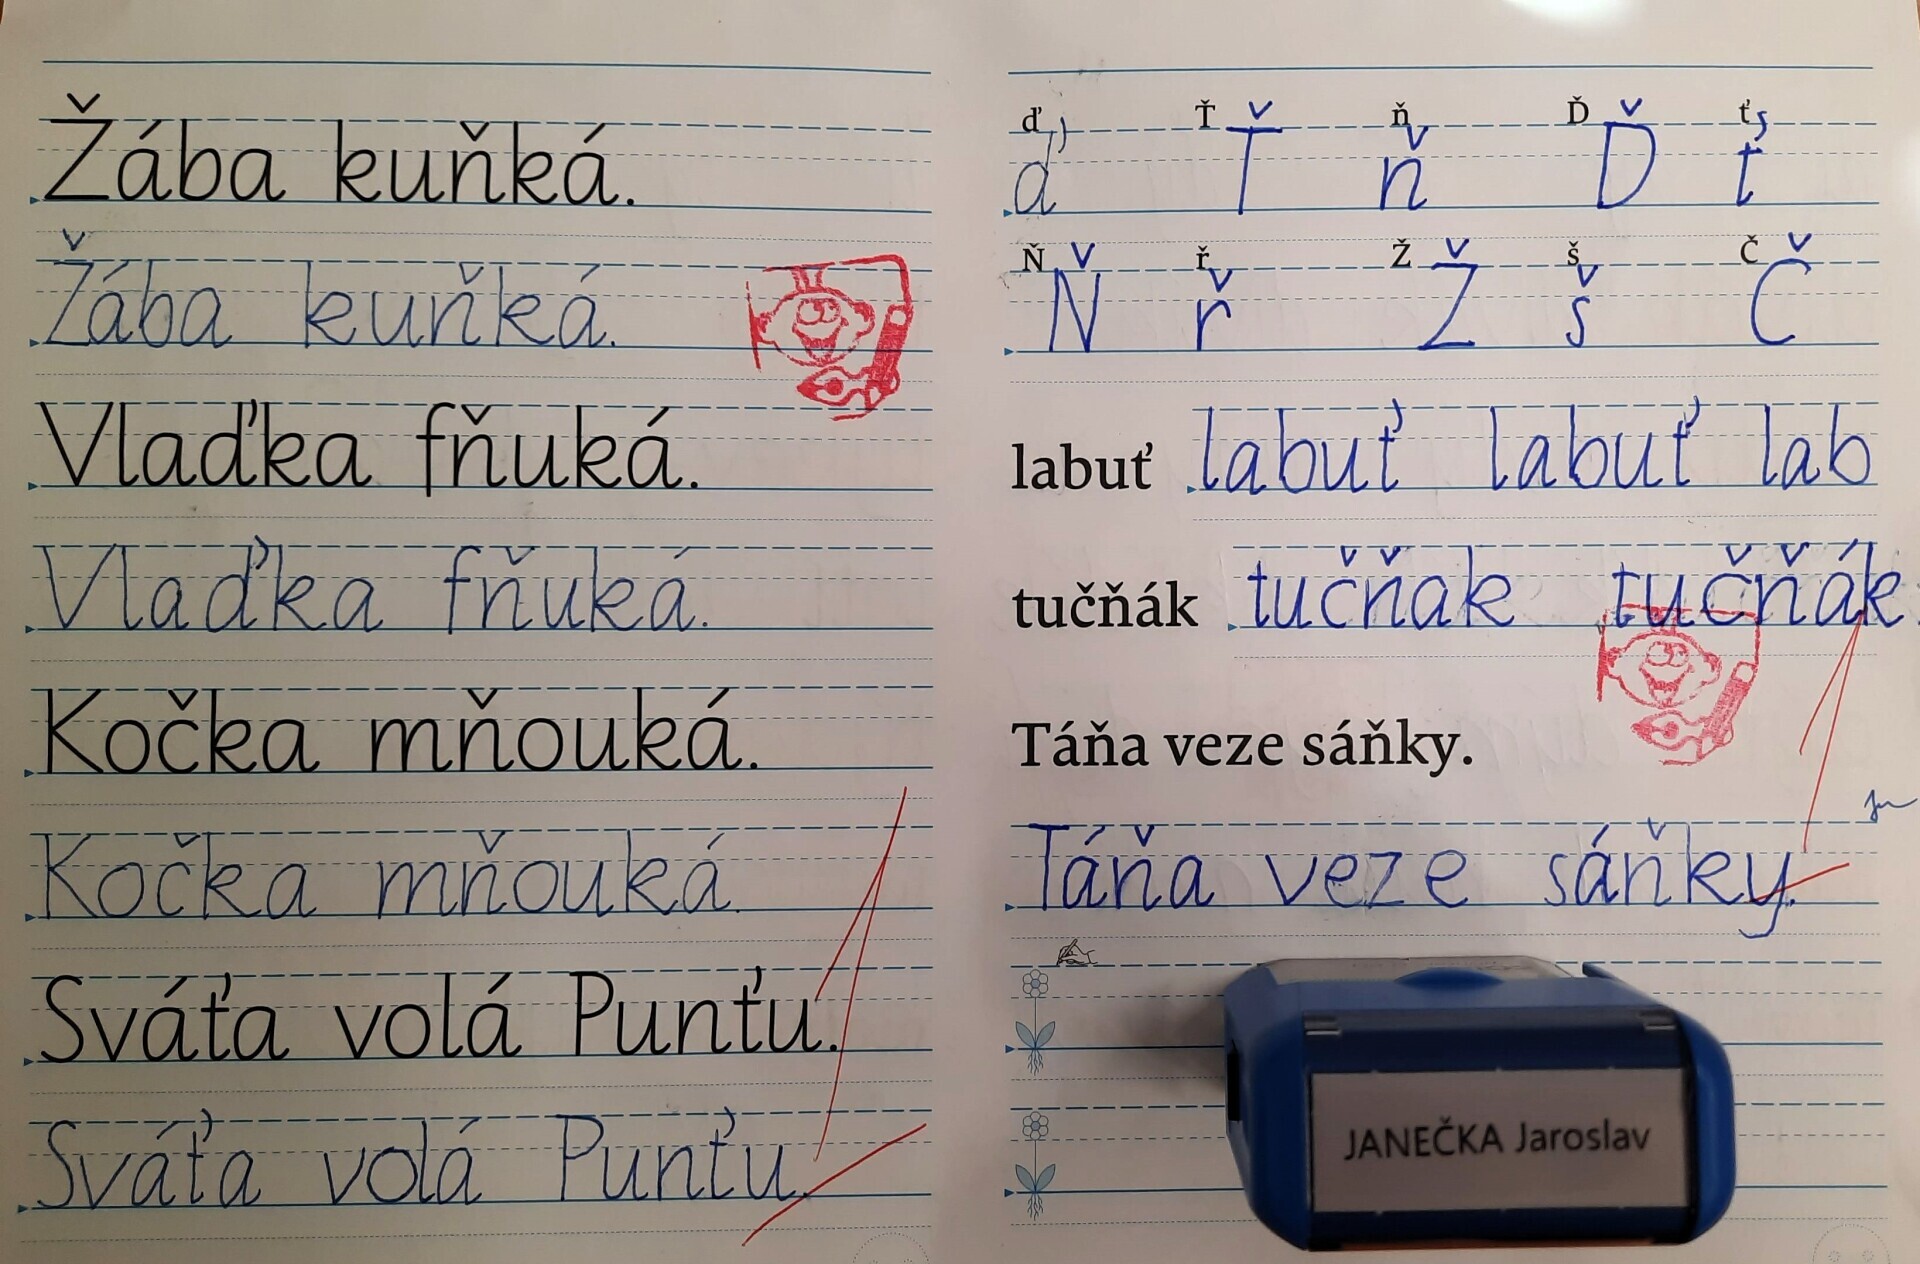 Žába kuňká.
Žába kuňká.
Vlaďka fňuká.
Vlaďka fňuká.
Kočka mňouká.
Kočka mňouká.
Sváťa volá Punťu.
Sváťa volá Punťu.
ď Ť ň Ď ť
ď Ť ň Ď ť
Ň ř Ž š Č
Ň ř Ž š Č
labuť labuť labuť lab
tučňák tučňak tučňák
Táňa veze sáňky.
Táňa veze sáňky.
JANEČKA Jaroslav